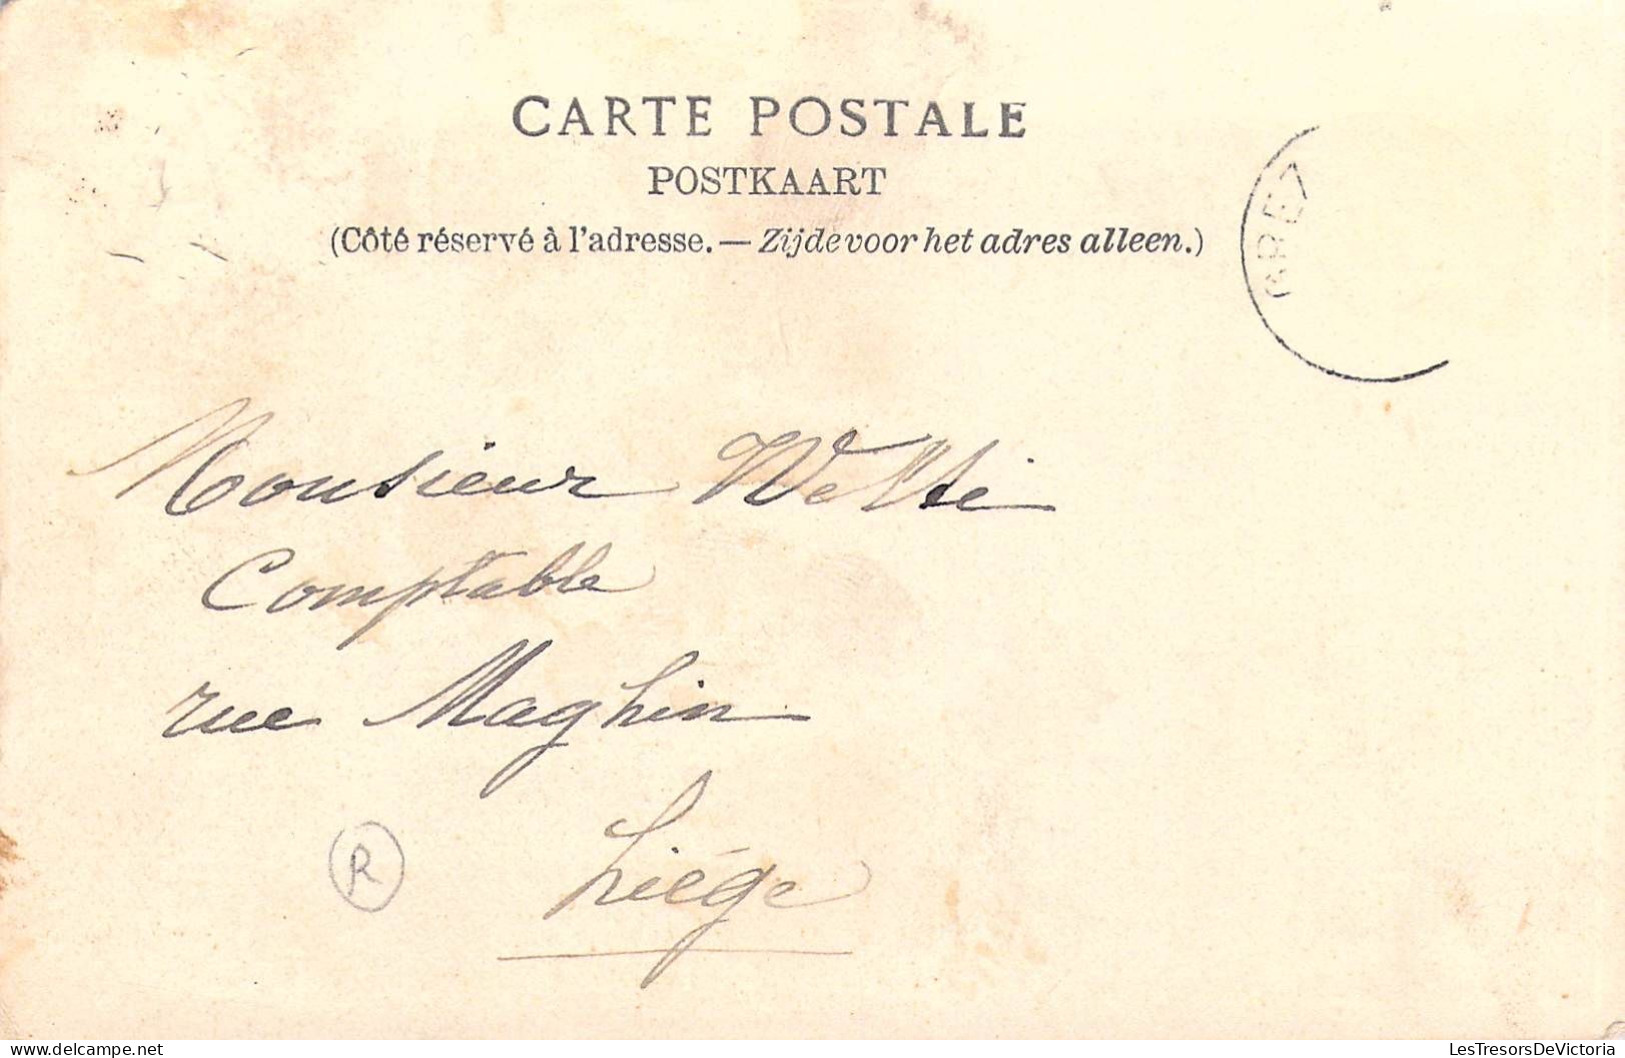 CARTE POSTALE
POSTKAART
(Côté réservé à l'adresse. — Zijde voor het adres alleen.)
GREZ
Monsieur Welti
Comptable
rue Maghin
Liége
R
LesTresorsDeVictoria